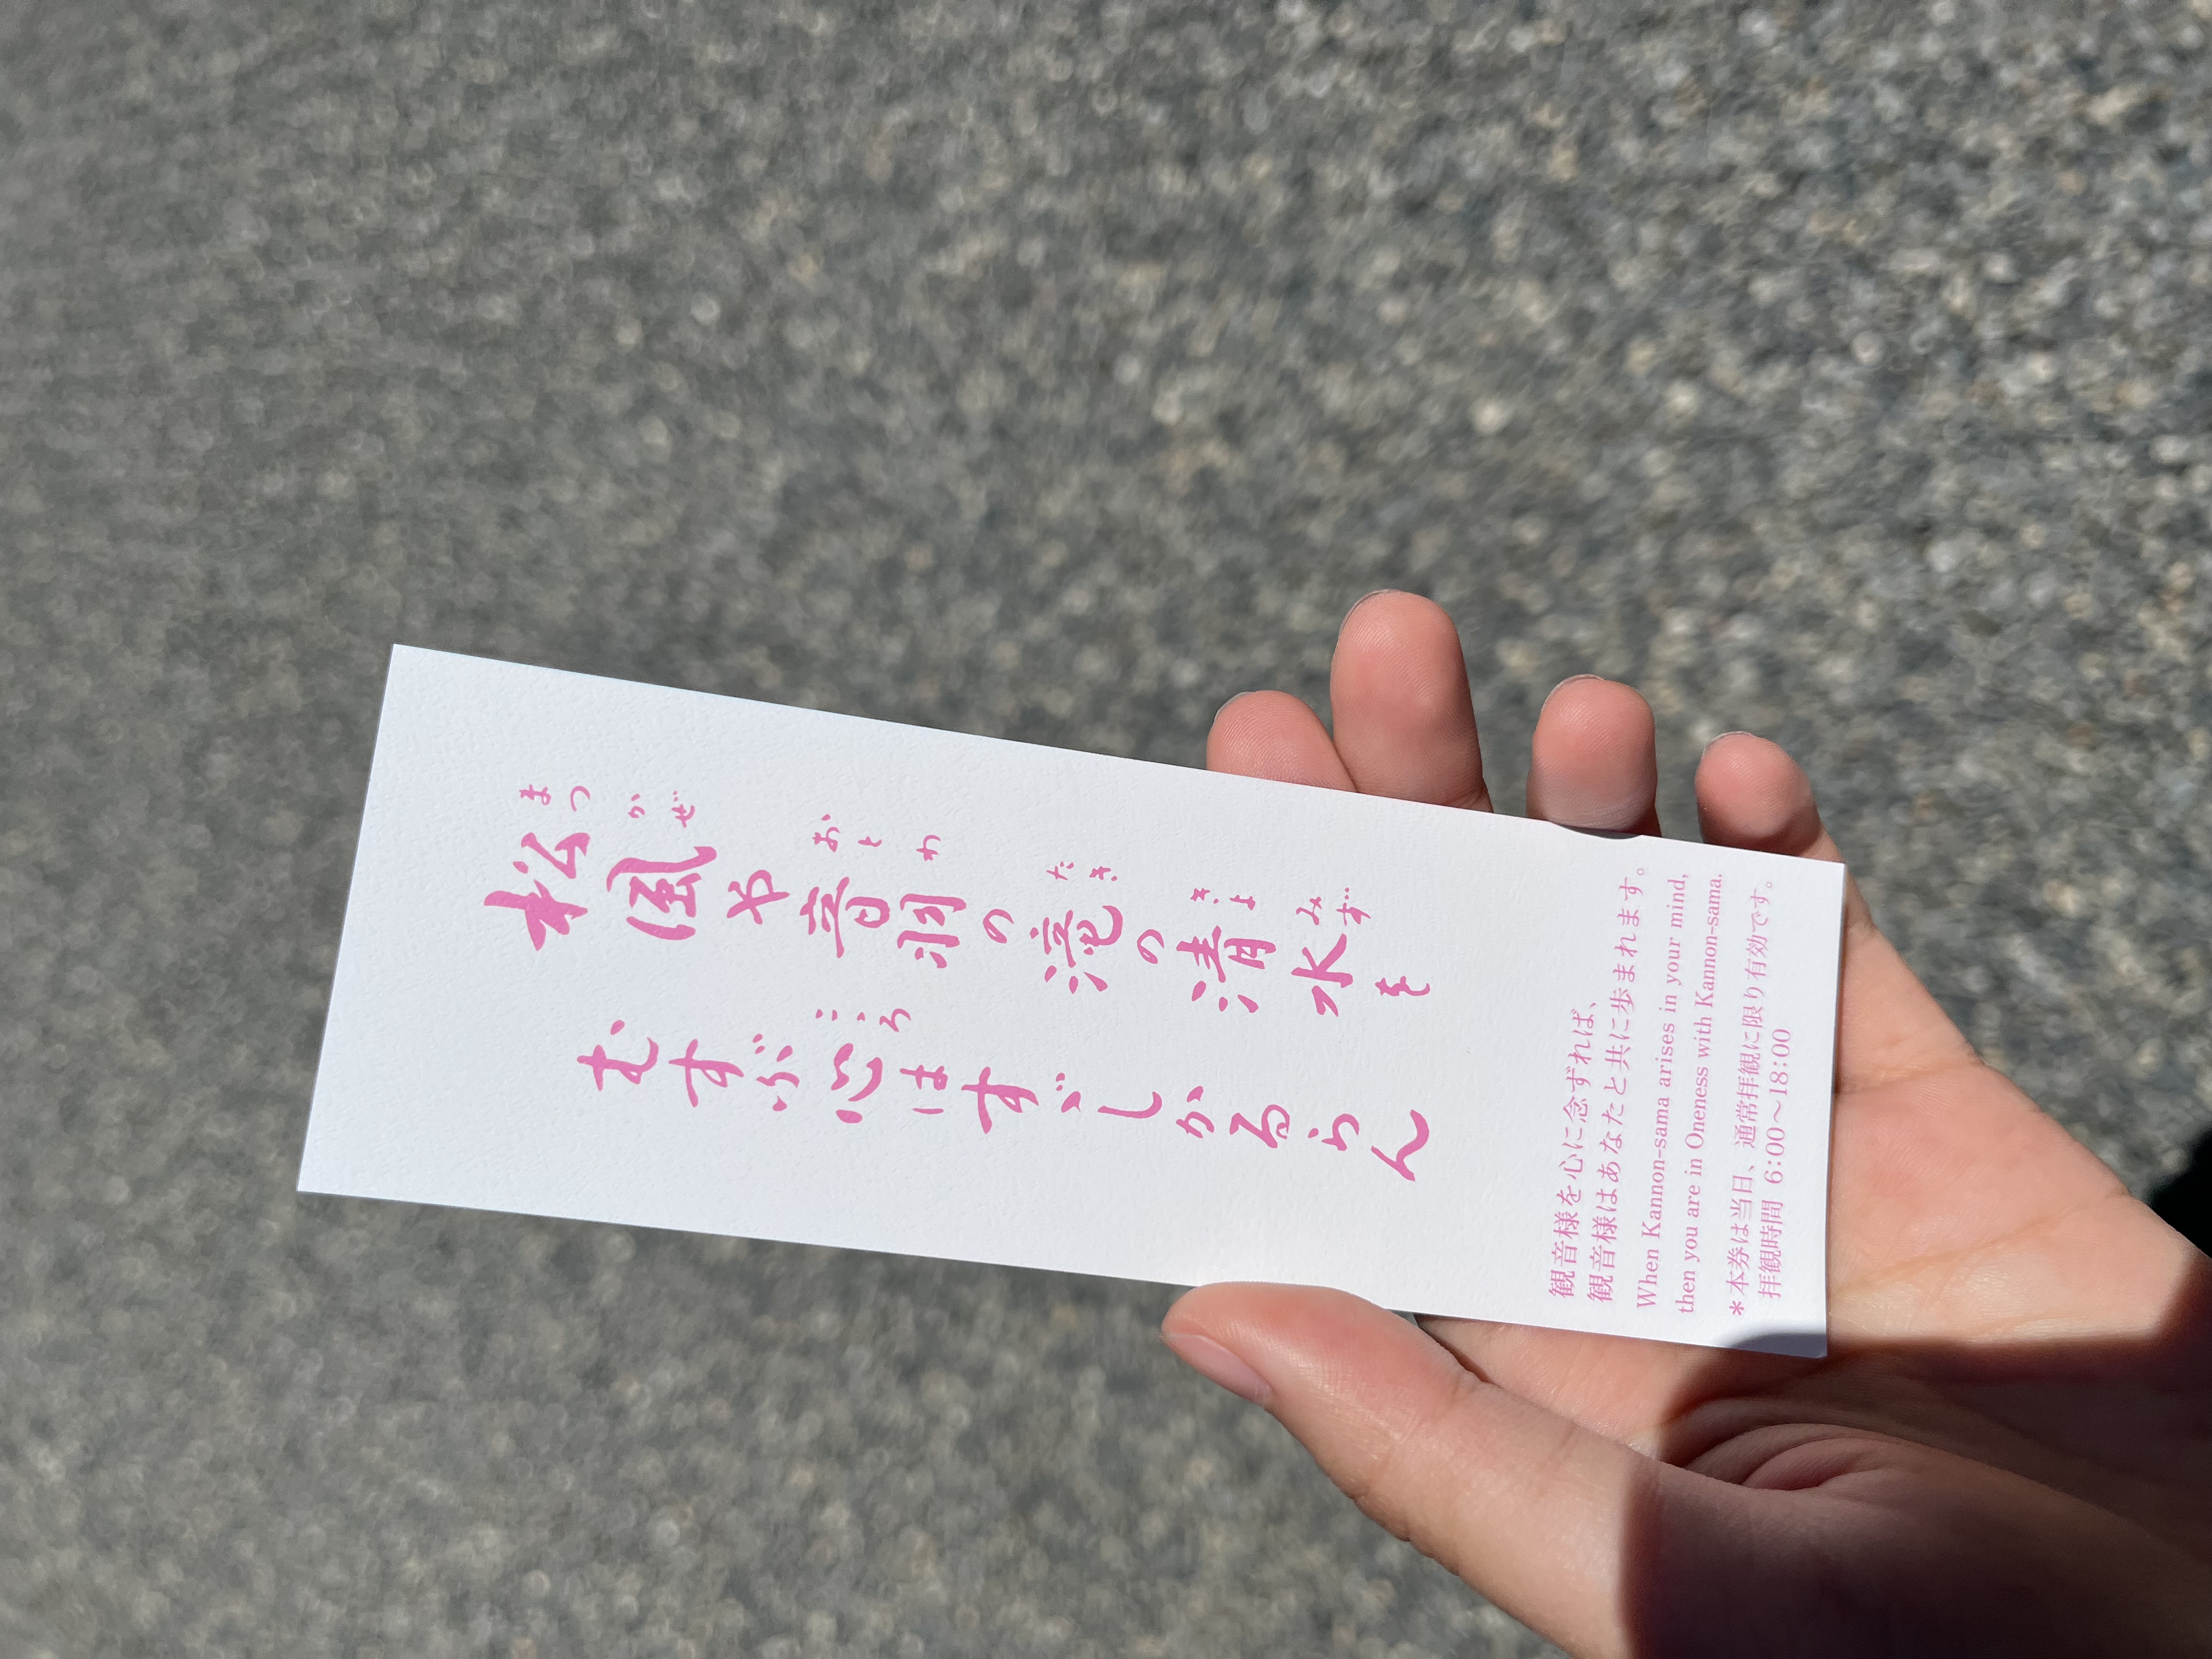 松風や音羽の滝の清水を
まつ かぜ おとわ たき きよ みず
むすぶ心はすゞしかるらん
こゝろ
観音様を心に念ずれば、
観音様はあなたと共に歩まれます。
When Kannon-sama arises in your mind,
then you are in Oneness with Kannon-sama.
*本券は当日、通常拝観に限り有効です。
拝観時間 6:00〜18:00